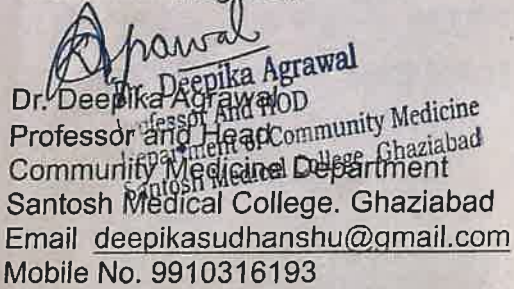 Agrawal
Dr. Deepika Agrawal
Professor And HOD
Department of Community Medicine
Santosh Medical College, Ghaziabad
Dr. Deepika Agrawal
Professor and Head
Community Medicine Department
Santosh Medical College. Ghaziabad
Email deepikasudhanshu@gmail.com
Mobile No. 9910316193